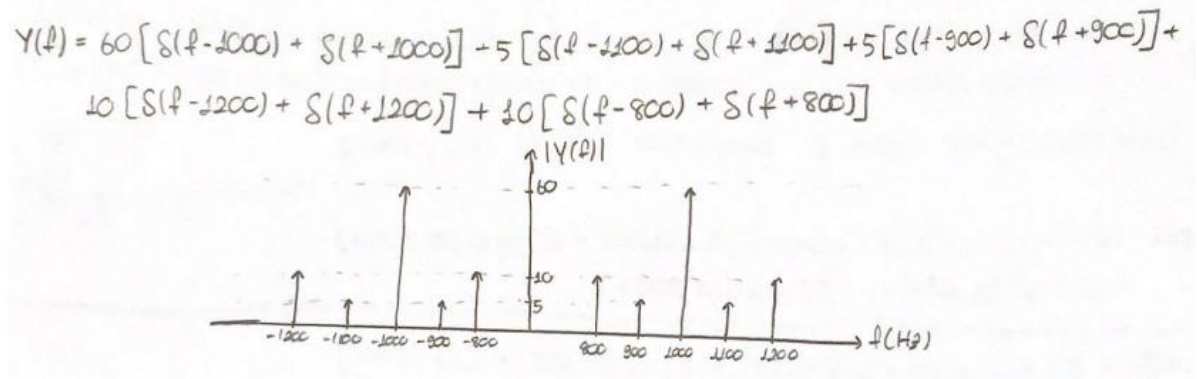 Y(f) = 60 [δ(f-1000) + δ(f+1000)] - 5 [δ(f-1100) + δ(f+1100)] + 5 [δ(f-900) + δ(f+900)] +
10 [δ(f-1200) + δ(f+1200)] + 10 [δ(f-800) + δ(f+800)]
|Y(f)|
60
10
5
-1200 -1100 -1000 -900 -800 800 900 1000 1100 1200 f(Hz)